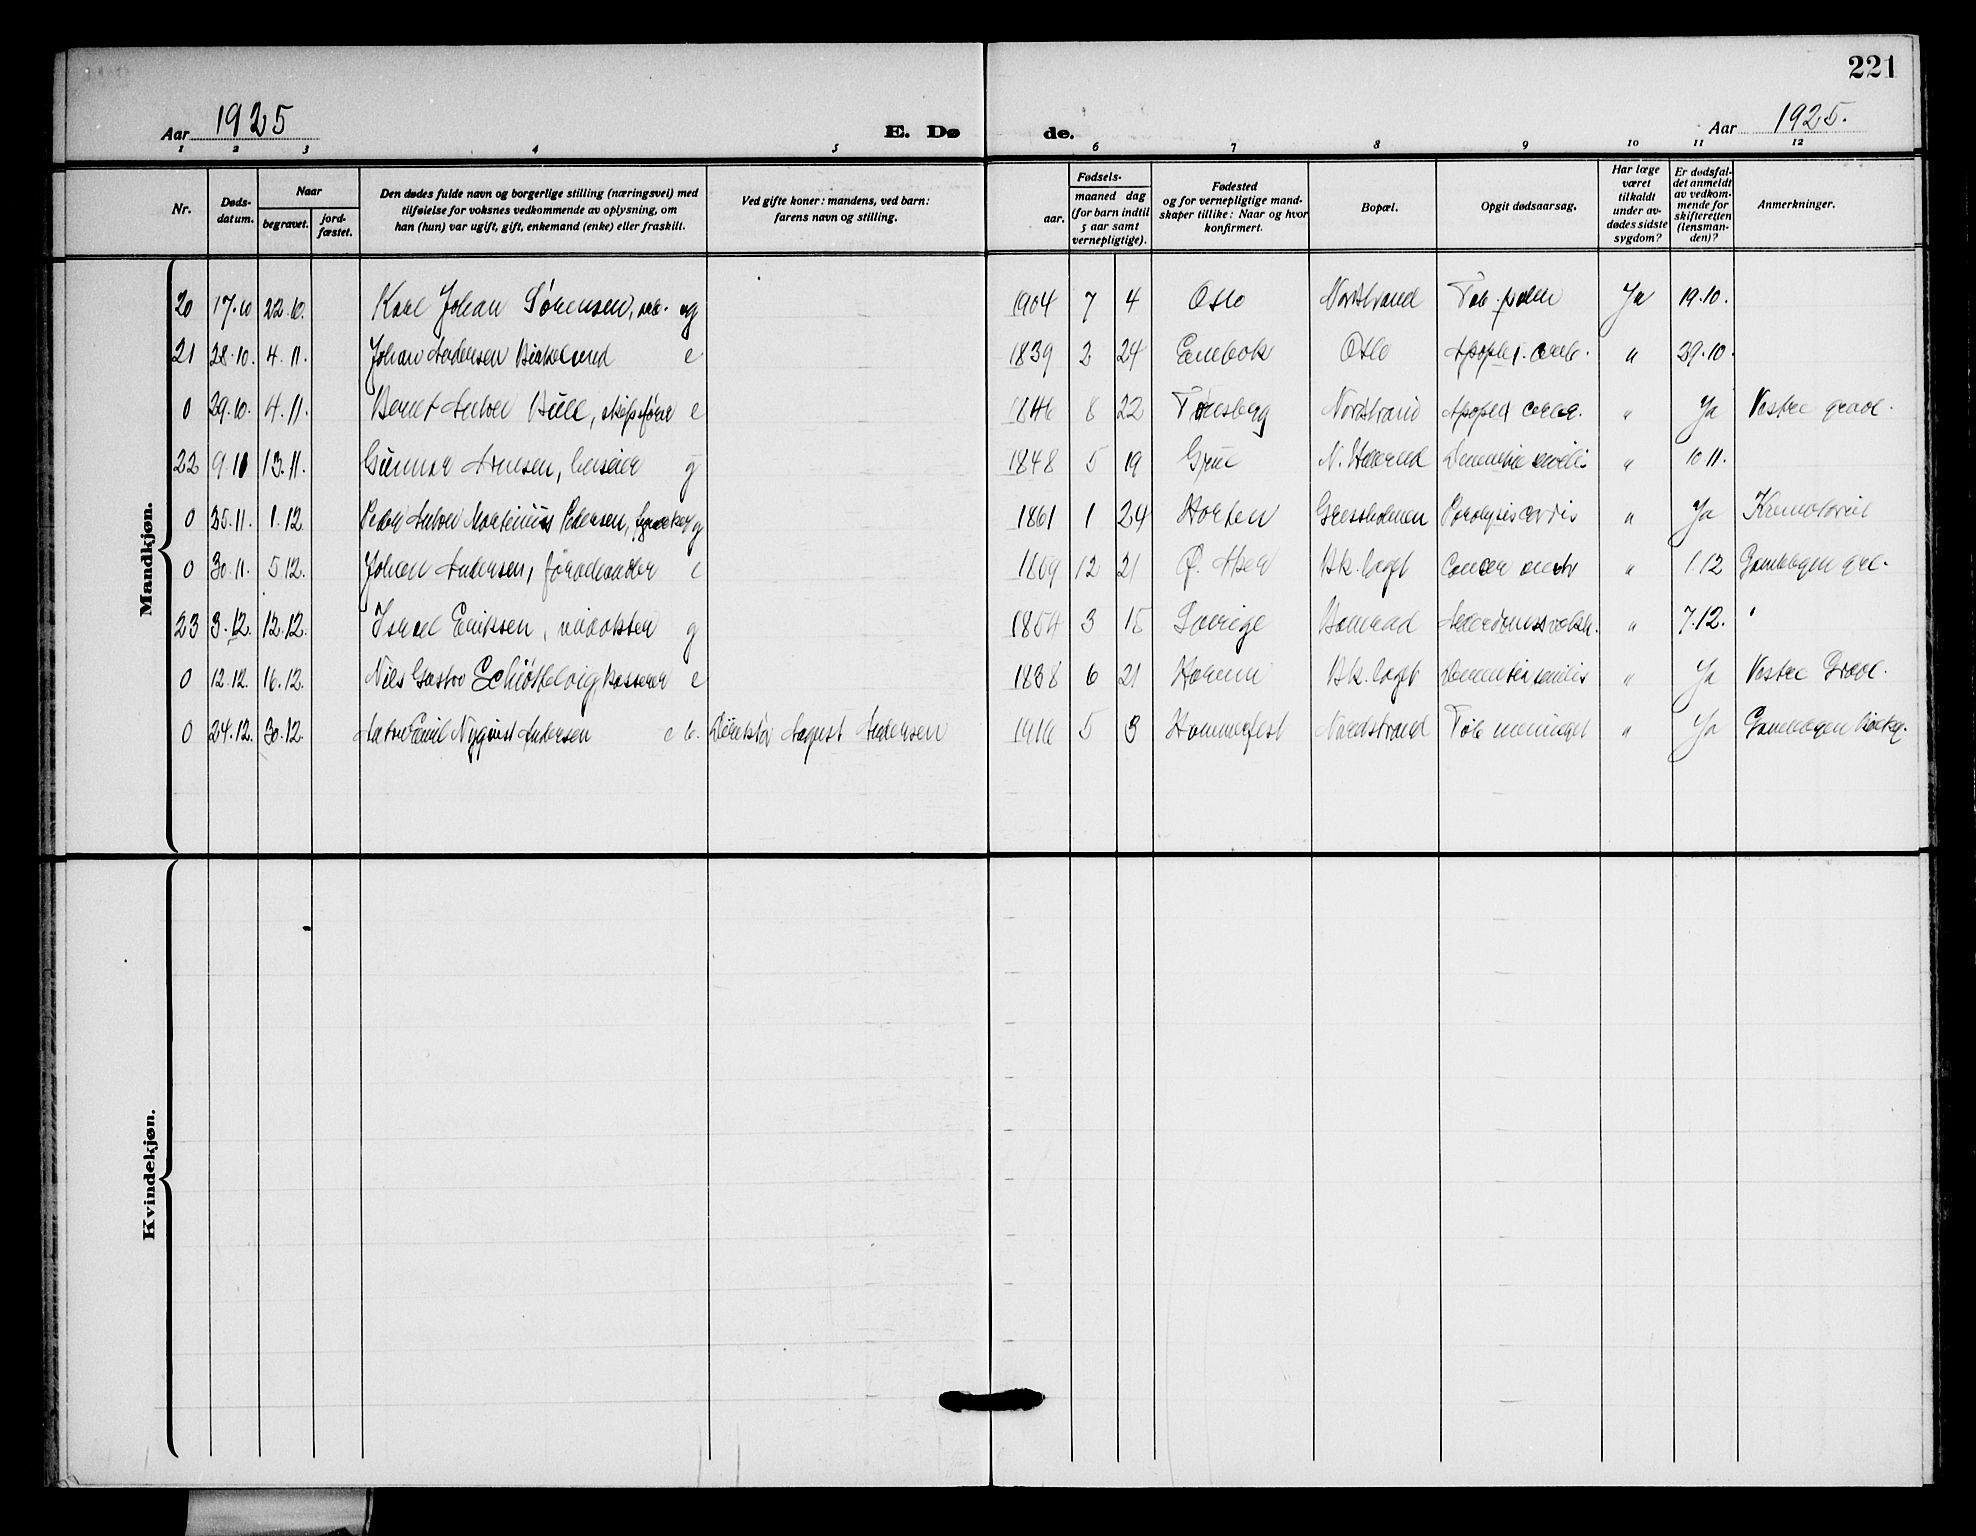 221
Aar 1925
E. Dø de.
Aar 1925.
1 2 3 4 5 6 7 8 9 10 11 12
Nr.
Døds-
datum.
Naar
begravet.
jord-
fæstet.
Den dødes fulde navn og borgerlige stilling (næringsvei) med
tilføielse for voksnes vedkommende av oplysning, om
han (hun) var ugift, gift, enkemand (enke) eller fraskilt.
Ved gifte koner: mandens, ved barn:
farens navn og stilling.
Fødsels-
aar.
maaned dag
(for barn indtil
5 aar samt
vernepligtige).
Fødested
og for vernepligtige mand-
skaper tillike: Naar og hvor
konfirmert.
Bopæl.
Opgit dødsaarsag.
Har læge
været
tilkaldt
under av-
dødes sidste
sygdom?
Er dødsfal-
det anmeldt
av vedkom-
mende for
skifteretten
(lensman-
den)?
Anmerkninger.
Mandkjøn.
20 17.10 22.10. Karl Johan Sørensen, ug 1904 7 4 Oslo Nordstrand Tub. Ja 19.10.
21 28.10. 4.11. Johan Andersen Birkelund e 1839 2 24 Enebak Oslo Apoplex. cereb. " 29.10.
0 29.10. 4.11. Bernt Anton Bull, skibsfører e 1846 8 22 Tønsberg Nordstrand Apoplex cereb. " Ja Vestre gravl.
22 9.11 13.11. Gunnar Arnesen, g 1848 5 19 Grue Dementia senilis " 10.11.
0 25.11. 1.12 Peder Anton Martinius Pedersen, g 1861 1 24 Horten Gressholmen Paralysis cordis " Ja Krematoriet
0 30.11. 5.12. Johan Andersen, e 1859 12 21 Ø. Aker Bk. lagt Cancer " 1.12 Gamlebyen grl.
23 3.12. 12.12. Israel Eriksen, g 1854 3 15 Sverige Alderdomssvaksh. " 7.12. "
0 12.12. 16.12. Nils Gustav kasserer e 1838 6 21 Bk. lagt Dementia senilis " Ja Vestre Gravl.
0 24.12. 30.12. Emil Nyquist Andersen e b. Direktør August Andersen 1916 5 3 Hammerfest Nordstrand Tub. meningit " Ja Gamlebyen
Kvindekjøn.